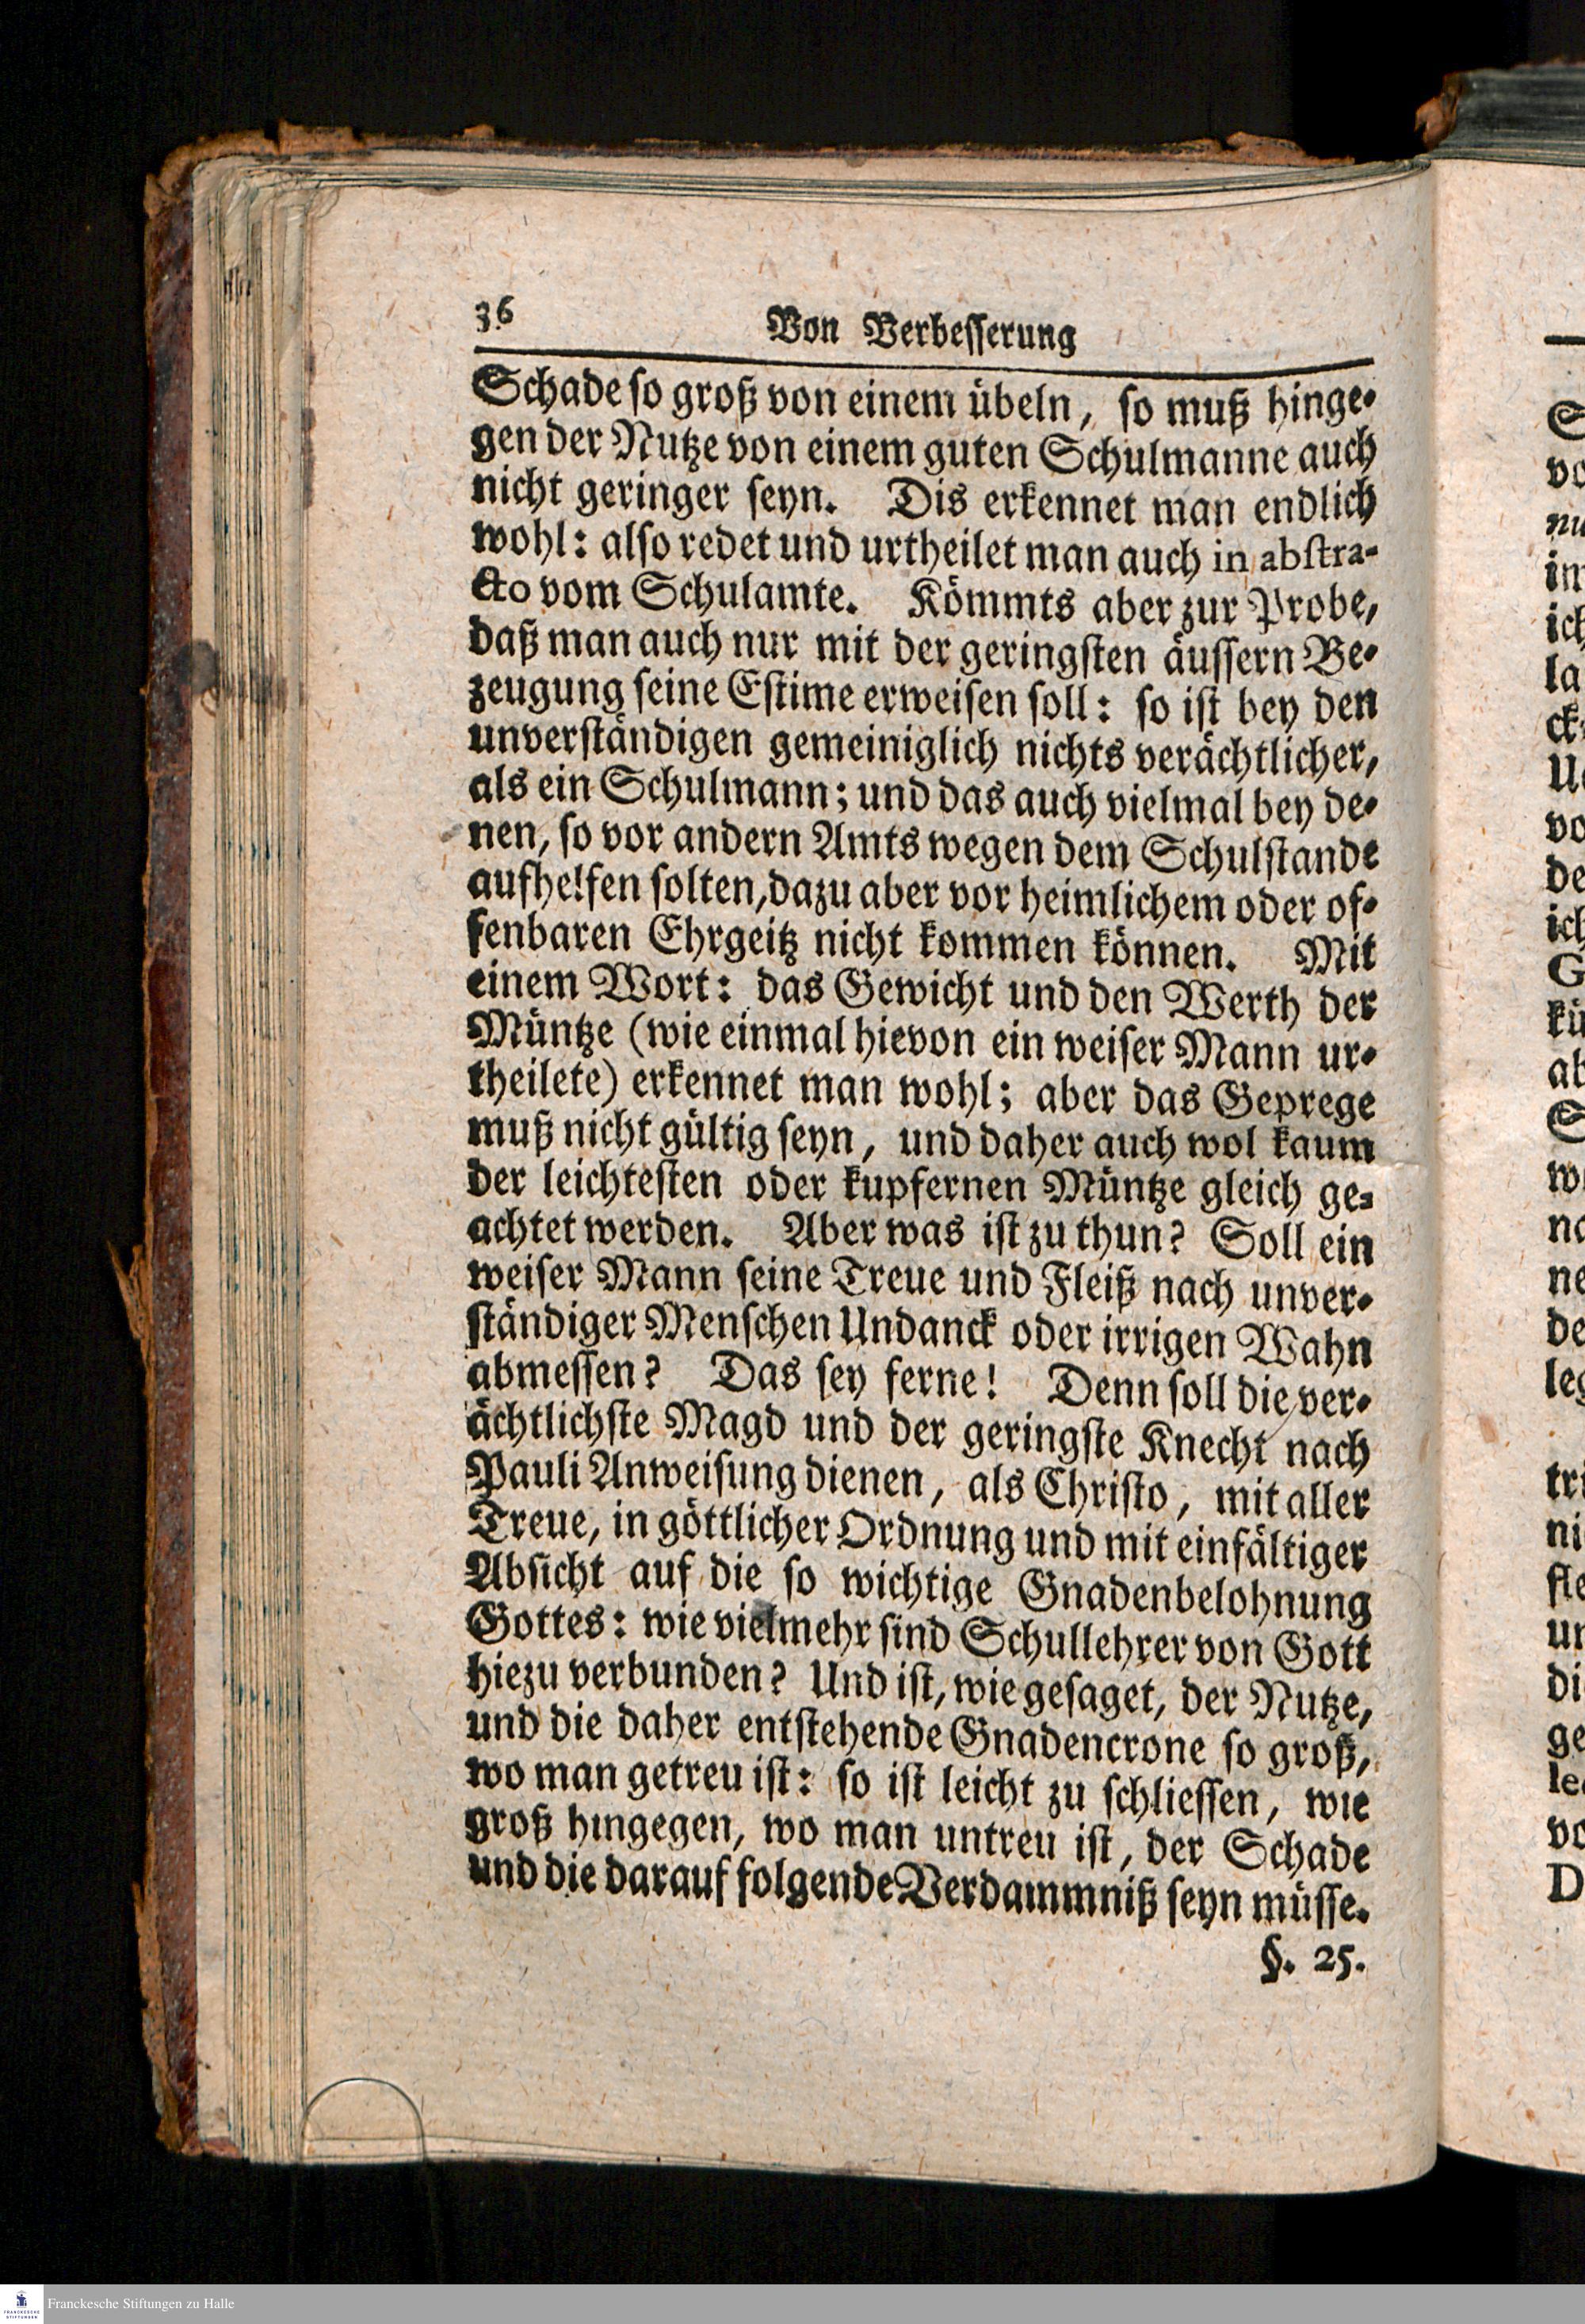 36 Von Verbesserung
Schade so groß von einem übeln, so muß hinge-
gen der Nutze von einem guten Schulmanne auch
nicht geringer seyn. Dis erkennet man endlich
wohl: also redet und urtheilet man auch in abstra-
cto vom Schulamte. Kömmts aber zur Probe,
daß man auch nur mit der geringsten äussern Be-
zeugung seine Estime erweisen soll: so ist bey den
unverständigen gemeiniglich nichts verächtlicher,
als ein Schulmann; und das auch vielmal bey de-
nen, so vor andern Amts wegen dem Schulstande
aufhelfen solten, dazu aber vor heimlichem oder of-
fenbaren Ehrgeitz nicht kommen können. Mit
einem Wort: das Gewicht und den Werth der
Müntze (wie einmal hievon ein weiser Mann ur-
theilete) erkennet man wohl; aber das Geprege
muß nicht gültig seyn, und daher auch wol kaum
der leichtesten oder kupfernen Müntze gleich ge-
achtet werden. Aber was ist zu thun? Soll ein
weiser Mann seine Treue und Fleiß nach unver-
ständiger Menschen Undanck oder irrigen Wahn
abmessen? Das sey ferne! Denn soll die ver-
ächtlichste Magd und der geringste Knecht nach
Pauli Anweisung dienen, als Christo, mit aller
Treue, in göttlicher Ordnung und mit einfältiger
Absicht auf die so wichtige Gnadenbelohnung
Gottes: wie vielmehr sind Schullehrer von Gott
hiezu verbunden? Und ist, wie gesaget, der Nutze,
und die daher entstehende Gnadencrone so groß,
wo man getreu ist: so ist leicht zu schliessen, wie
groß hingegen, wo man untreu ist, der Schade
und die darauf folgende Verdammniß seyn müsse.
§. 25.
Franckesche Stiftungen zu Halle